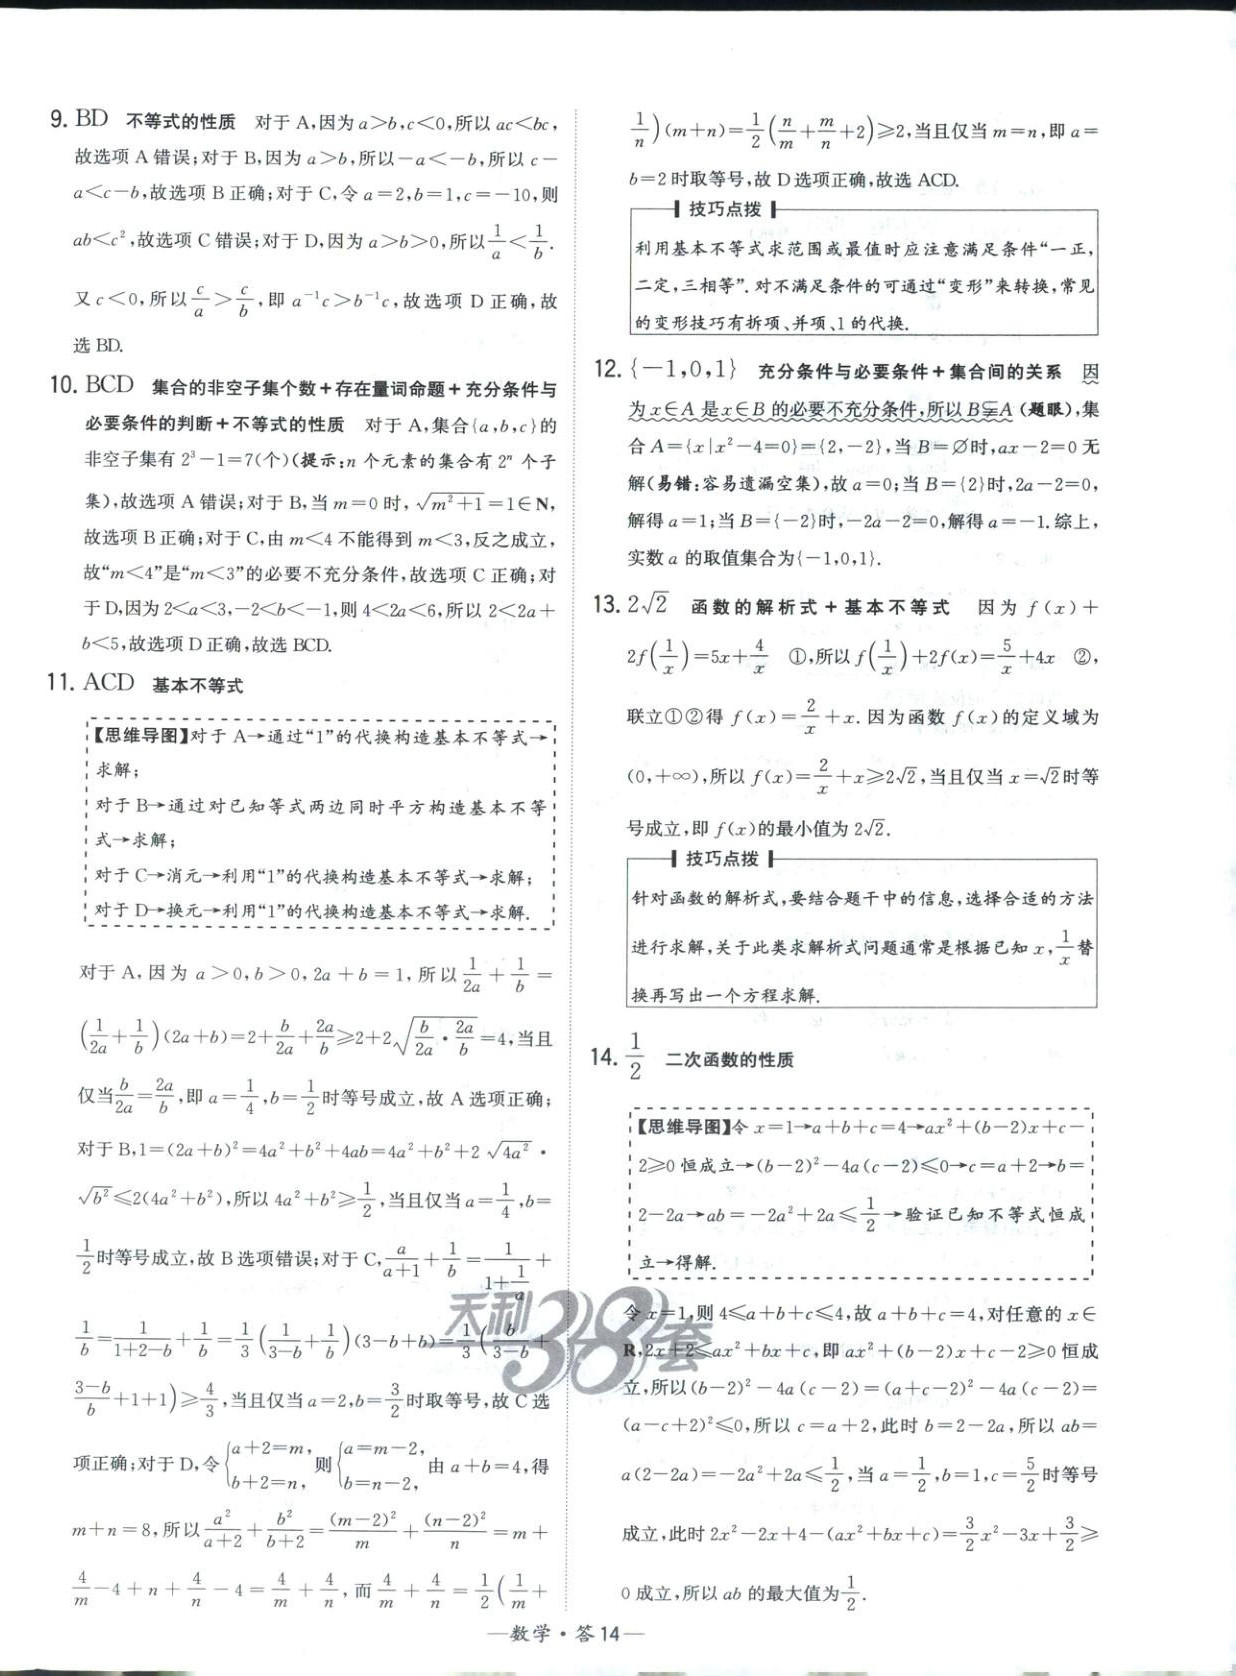 9. BD 不等式的性质 对于 A,因为 a>b,c<0,所以 ac<bc,
故选项 A 错误;对于 B,因为 a>b,所以-a<-b,所以 c-
a<c-b,故选项 B 正确;对于 C,令 a=2,b=1,c=-10,则
ab<c²,故选项 C 错误;对于 D,因为 a>b>0,所以 1/a<1/b.
又 c<0,所以 c/a>c/b,即 a⁻¹c>b⁻¹c,故选项 D 正确,故
选 BD.
10. BCD 集合的非空子集个数+存在量词命题+充分条件与
必要条件的判断+不等式的性质 对于 A,集合{a,b,c}的
非空子集有 2³-1=7(个)(提示:n 个元素的集合有 2ⁿ 个子
集),故选项 A 错误;对于 B,当 m=0 时,√(m²+1)=1∈N,
故选项 B 正确;对于 C,由 m<4 不能得到 m<3,反之成立,
故“m<4”是“m<3”的必要不充分条件,故选项 C 正确;对
于 D,因为 2<a<3,-2<b<-1,则 4<2a<6,所以 2<2a+
b<5,故选项 D 正确,故选 BCD.
11. ACD 基本不等式
【思维导图】对于 A→通过“1”的代换构造基本不等式→
求解;
对于 B→通过对已知等式两边同时平方构造基本不等
式→求解;
对于 C→消元→利用“1”的代换构造基本不等式→求解;
对于 D→换元→利用“1”的代换构造基本不等式→求解.
对于 A,因为 a>0,b>0,2a+b=1,所以 1/(2a)+1/b=
(1/(2a)+1/b)(2a+b)=2+b/(2a)+2a/b≥2+2√(b/(2a)·2a/b)=4,当且
仅当 b/(2a)=2a/b,即 a=1/4,b=1/2时等号成立,故 A 选项正确;
对于 B,1=(2a+b)²=4a²+b²+4ab=4a²+b²+2√(4a²)·
√(b²)≤2(4a²+b²),所以 4a²+b²≥1/2,当且仅当 a=1/4,b=
1/2时等号成立,故 B 选项错误;对于 C,a/(a+1)+1/b=1/(1+1/a)+
1/b=1/(1+2-b)+1/b=1/3(1/(3-b)+1/b)(3-b+b)=1/3(b/(3-b)+
(3-b)/b+1+1)≥4/3,当且仅当 a=2,b=3/2时取等号,故 C 选
项正确;对于 D,令{a+2=m, b+2=n, 则{a=m-2, b=n-2, 由 a+b=4,得
m+n=8,所以 a²/(a+2)+b²/(b+2)=(m-2)²/m+(n-2)²/n=m+
4/m-4+n+4/n-4=4/m+4/n,而 4/m+4/n=1/2(1/m+
1/n)(m+n)=1/2(n/m+m/n+2)≥2,当且仅当 m=n,即 a=
b=2 时取等号,故 D 选项正确,故选 ACD.
技巧点拨
利用基本不等式求范围或最值时应注意满足条件“一正,
二定,三相等”.对不满足条件的可通过“变形”来转换,常见
的变形技巧有拆项、并项、1 的代换.
12. {-1,0,1} 充分条件与必要条件+集合间的关系 因
为 x∈A 是 x∈B 的必要不充分条件,所以 B⫋A(题眼),集
合 A={x|x²-4=0}={2,-2},当 B=∅时,ax-2=0 无
解(易错:容易遗漏空集),故 a=0;当 B={2}时,2a-2=0,
解得 a=1;当 B={-2}时,-2a-2=0,解得 a=-1.综上,
实数 a 的取值集合为{-1,0,1}.
13. 2√2 函数的解析式+基本不等式 因为 f(x)+
2f(1/x)=5x+4/x ①,所以 f(1/x)+2f(x)=5/x+4x ②,
联立①②得 f(x)=2/x+x.因为函数 f(x)的定义域为
(0,+∞),所以 f(x)=2/x+x≥2√2,当且仅当 x=√2时等
号成立,即 f(x)的最小值为 2√2.
技巧点拨
针对函数的解析式,要结合题干中的信息,选择合适的方法
进行求解,关于此类求解析式问题通常是根据已知 x,1/x替
换再写出一个方程求解.
14. 1/2 二次函数的性质
【思维导图】令 x=1→a+b+c=4→ax²+(b-2)x+c-
2≥0 恒成立→(b-2)²-4a(c-2)≤0→c=a+2→b=
2-2a→ab=-2a²+2a≤1/2→验证已知不等式恒成
立→得解.
令 x=1,则 4≤a+b+c≤4,故 a+b+c=4,对任意的 x∈
R,2x+2≤ax²+bx+c,即 ax²+(b-2)x+c-2≥0 恒成
立,所以(b-2)²-4a(c-2)=(a+c-2)²-4a(c-2)=
(a-c+2)²≤0,所以 c=a+2,此时 b=2-2a,所以 ab=
a(2-2a)=-2a²+2a≤1/2,当 a=1/2,b=1,c=5/2时等号
成立,此时 2x²-2x+4-(ax²+bx+c)=3/2x²-3x+3/2≥
0 成立,所以 ab 的最大值为1/2.
天利38套
—数学·答 14—